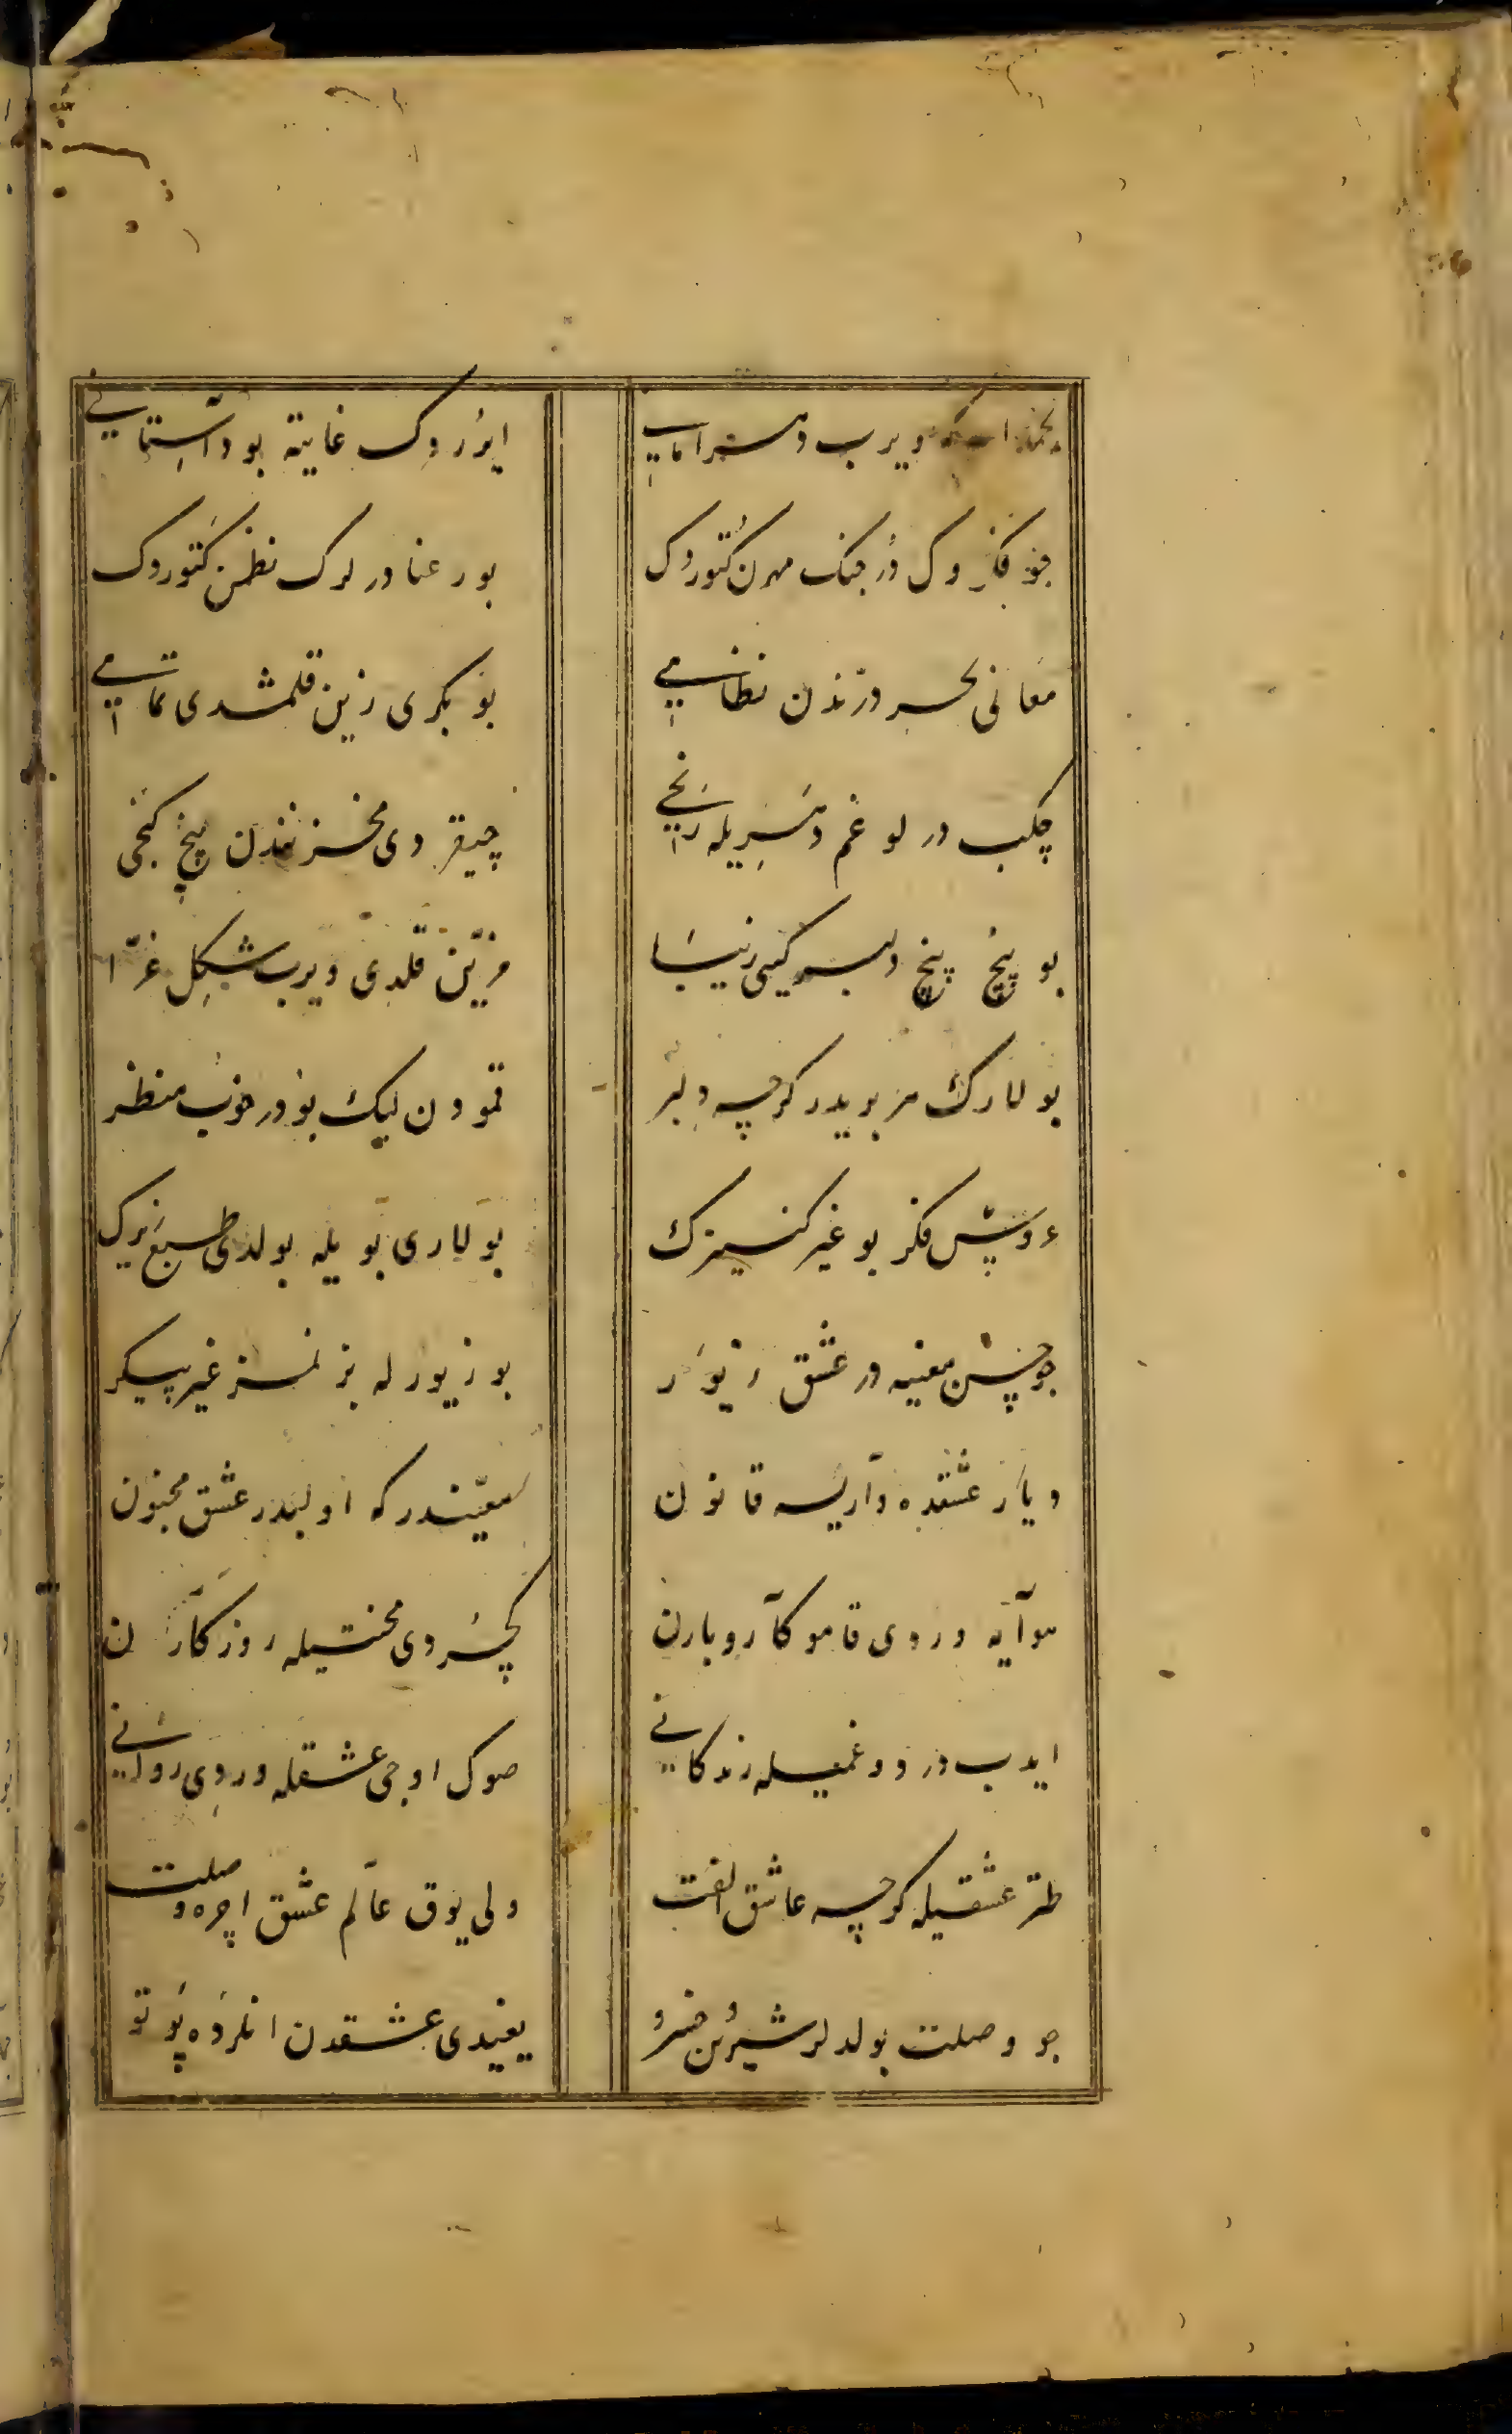 ویرب دسترامایی
ایرردک غایته بو داستانی
چو فکر وک درجنک مهرن کتوردک
بو رعنا دلرک نظمن کتوردک
معانی بحر درزندن نظامی
بو بکری زین قلمشدی تمامی
چکب درلو غم دهریله رنجی
چیقردی مخزنندن پنج کنجی
بو پنج پنج دلبر کبی زیبا
مزین قلدی ویرب شکل غرا
بولارک هر بریدر کرچه دلبر
قمودن لیک بودر خوب منظر
عروس فکر بو غیر کنیزک
بولاری بویله بولدی طبع زیرک
چو حسن معنیه در عشق زیور
بو زیورله بزنمز غیر پیکر
دیار عشقده واریسه قانون
معیندر که اولیدر عشق مجنون
هوایه وردی قامو کار و بارن
کچردی محنتیله روزکارن
ایدب درد و غمیله زندکانی
صوک اوجی عشقله وردی روانی
طتر عشقیله کرچه عاشق الفت
ولی یوق عالم عشق اچره وصلت
چو وصلت بولدلر شیرین خسرو
یغیدی عشقدن انلرده پرتو